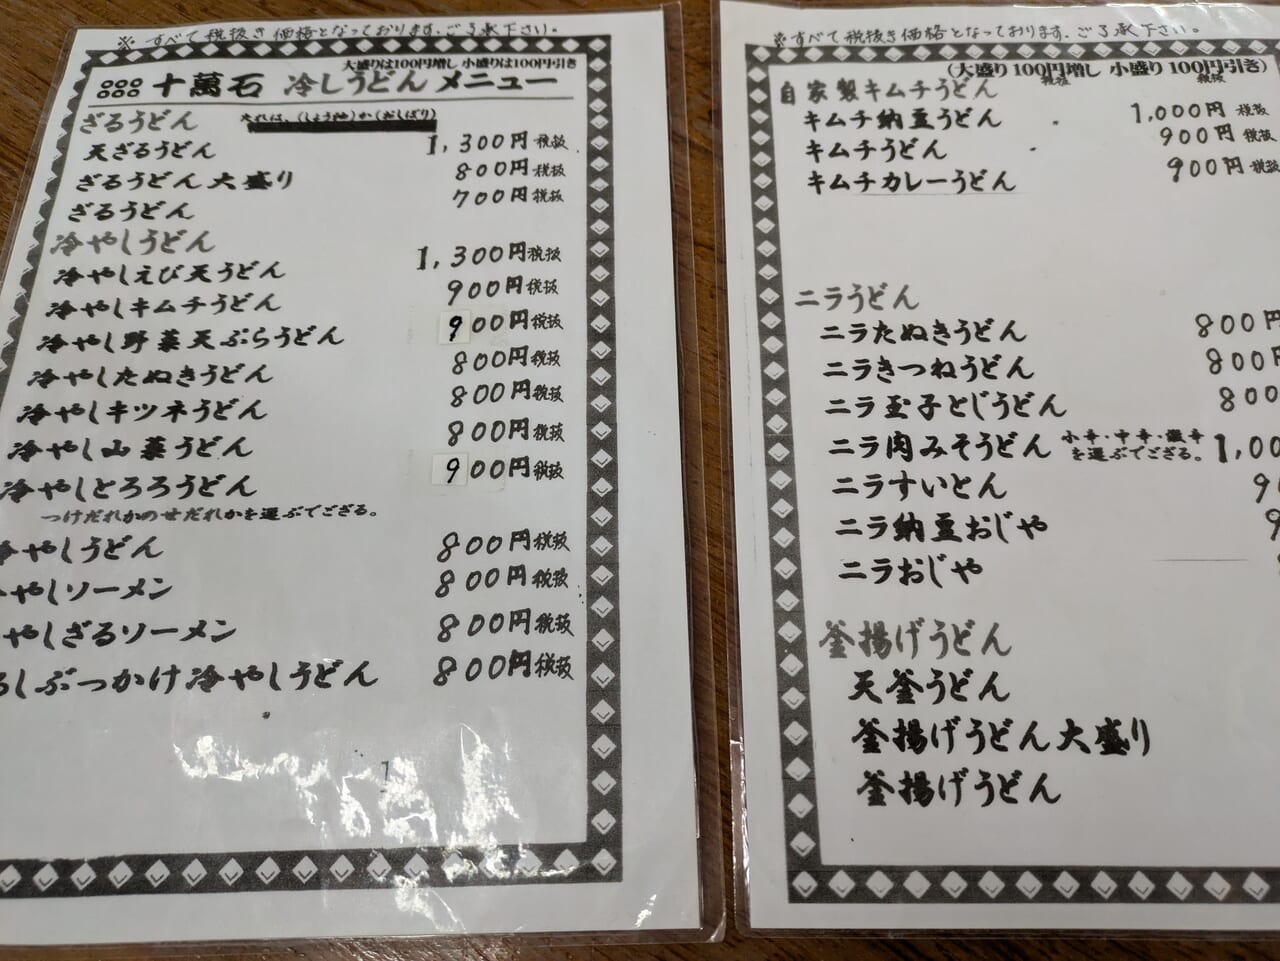 ※ すべて税抜き価格となっております。ご了承下さい。
大盛りは100円増し 小盛りは100円引き
十萬石 冷しうどん メニュー
ざるうどん
天ざるうどん 1,300円 税抜
ざるうどん大盛り 800円 税抜
ざるうどん 700円 税抜
冷やしうどん
冷やしえび天うどん 1,300円 税抜
冷やしキムチうどん 900円 税抜
冷やし野菜天ぷらうどん 900円 税抜
冷やしたぬきうどん 800円 税抜
冷やしキツネうどん 800円 税抜
冷やし山菜うどん 800円 税抜
冷やしとろろうどん 900円 税抜
つけだれかのせだれかを選ぶでござる。
冷やしうどん 800円 税抜
やしソーメン 800円 税抜
やしざるソーメン 800円 税抜
ろしぶっかけ冷やしうどん 800円 税抜
※すべて税抜き価格となっております。ご了承下さい。
(大盛り100円増し 小盛り100円引き)
税抜 税抜
自家製キムチうどん
キムチ納豆うどん 1,000円 税抜
キムチうどん 900円 税抜
キムチカレーうどん 900円 税抜
ニラうどん
ニラたぬきうどん 800円
ニラきつねうどん 800円
ニラ玉子とじうどん 800
ニラ肉みそうどん 小辛・中辛・激辛を選ぶでござる。 1,00
ニラすいとん 9
ニラ納豆おじや 9
ニラおじや
釜揚げうどん
天釜うどん
釜揚げうどん大盛り
釜揚げうどん